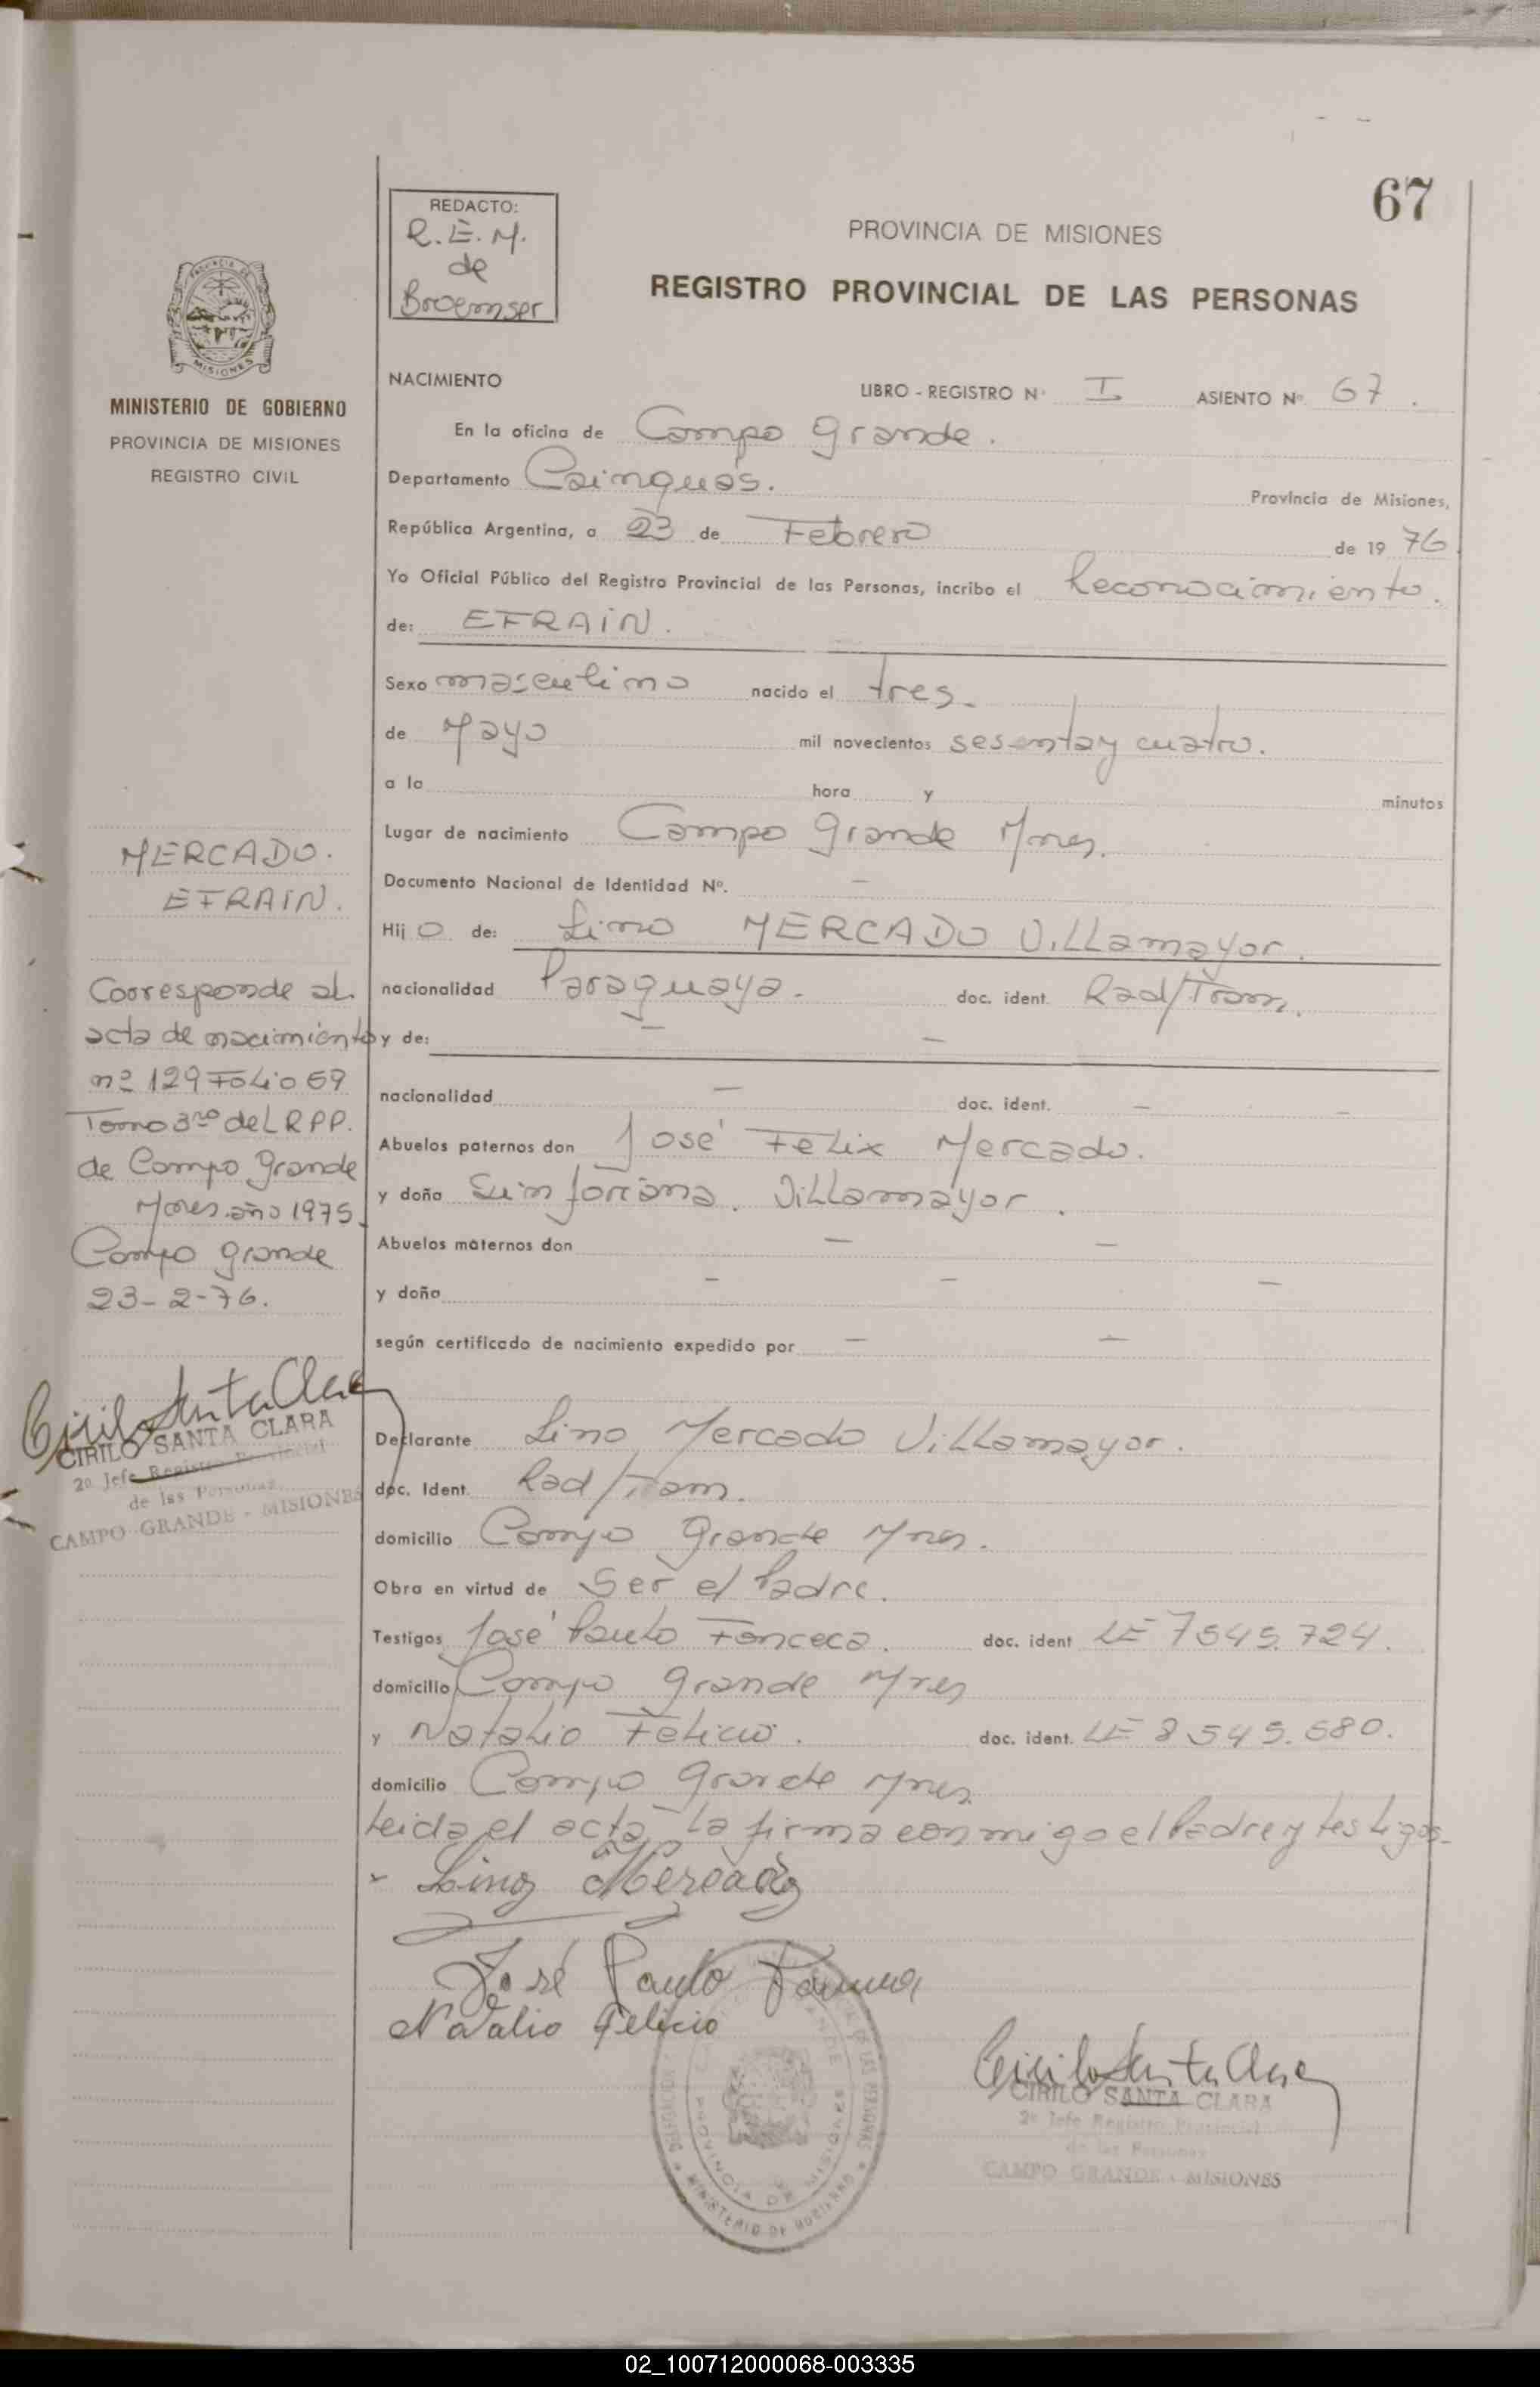 67
REDACTO:
R.E.M.
de
Broemser
PROVINCIA DE MISIONES
REGISTRO PROVINCIAL DE LAS PERSONAS
PROVINCIA DE
MISIONES
MINISTERIO DE GOBIERNO
PROVINCIA DE MISIONES
REGISTRO CIVIL
NACIMIENTO LIBRO - REGISTRO Nº I ASIENTO Nº 67.
En la oficina de Campo Grande.
Departamento Cainguás. Provincia de Misiones,
República Argentina, a 23 de Febrero de 19 76
Yo Oficial Público del Registro Provincial de las Personas, incribo el Reconocimiento.
de: EFRAIN.
Sexo masculino nacido el tres.
de Mayo mil novecientos sesenta y cuatro.
a la hora y minutos
Lugar de nacimiento Campo Grande Mnes.
Documento Nacional de Identidad Nº. —
Hij o de: Lino MERCADO Villamayor.
nacionalidad Paraguaya. doc. ident. Rad/Tram.
y de: — —
nacionalidad — doc. ident. — —
Abuelos paternos don José Felix Mercado.
y doña Villamayor.
Abuelos maternos don — —
y doña — — —
según certificado de nacimiento expedido por — —
Declarante Lino Mercado Villamayor.
doc. Ident. Rad/Tram.
domicilio Campo Grande Mnes.
Obra en virtud de Ser el Padre.
Testigos José Paulo Fonceca. doc. ident LE 7545.724.
domicilio Campo Grande Mnes
y Natalio Felicio. doc. ident. LE 8545.580.
domicilio Campo Grande Mnes
Leida el acta la firma conmigo el Padre y testigos.
Lino Mercado
José Paulo
Natalio Felicio
Cirilo Santa Clara
CIRILO SANTA CLARA
2º Jefe Registro Provincial
de las Personas
CAMPO GRANDE - MISIONES
PROVINCIA DE MISIONES
MINISTERIO DE GOBIERNO
MERCADO.
EFRAIN.
Corresponde al
acta de nacimiento
nº 129 Folio 69
Tomo 3ro del R P P.
de Campo Grande
Mnes. año 1975.
Campo Grande
23-2-76.
Cirilo Santa Clara
CIRILO SANTA CLARA
2º Jefe Registro Provincial
de las Personas
CAMPO GRANDE - MISIONES
02_100712000068-003335